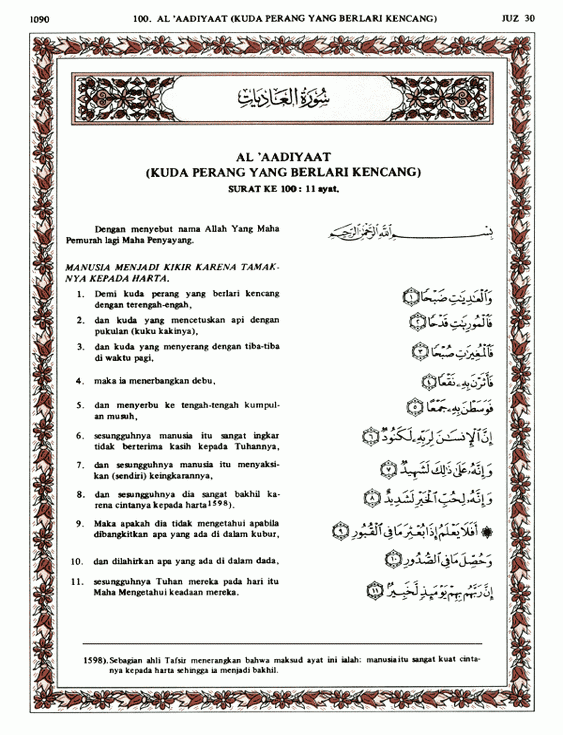 1090 100. AL 'AADIYAAT (KUDA PERANG YANG BERLARI KENCANG) JUZ 30
سُورَة العَاديَات
AL 'AADIYAAT
(KUDA PERANG YANG BERLARI KENCANG)
SURAT KE 100 : 11 ayat.
Dengan menyebut nama Allah Yang Maha
Pemurah lagi Maha Penyayang.
بِسْمِ اللَّهِ الرَّحْمَٰنِ الرَّحِيمِ
MANUSIA MENJADI KIKIR KARENA TAMAK-
NYA KEPADA HARTA.
1. Demi kuda perang yang berlari kencang
dengan terengah-engah,
وَالْعَٰدِيَٰتِ ضَبْحًا ﴿١﴾
2. dan kuda yang mencetuskan api dengan
pukulan (kuku kakinya),
فَالْمُورِيَٰتِ قَدْحًا ﴿٢﴾
3. dan kuda yang menyerang dengan tiba-tiba
di waktu pagi,
فَالْمُغِيرَٰتِ صُبْحًا ﴿٣﴾
4. maka ia menerbangkan debu,
فَأَثَرْنَ بِهِۦ نَقْعًا ﴿٤﴾
5. dan menyerbu ke tengah-tengah kumpul-
an musuh,
فَوَسَطْنَ بِهِۦ جَمْعًا ﴿٥﴾
6. sesungguhnya manusia itu sangat ingkar
tidak berterima kasih kepada Tuhannya,
إِنَّ الْإِنسَٰنَ لِرَبِّهِۦ لَكَنُودٌ ﴿٦﴾
7. dan sesungguhnya manusia itu menyaksi-
kan (sendiri) keingkarannya,
وَإِنَّهُۥ عَلَىٰ ذَٰلِكَ لَشَهِيدٌ ﴿٧﴾
8. dan sesungguhnya dia sangat bakhil ka-
rena cintanya kepada harta1598).
وَإِنَّهُۥ لِحُبِّ الْخَيْرِ لَشَدِيدٌ ﴿٨﴾
9. Maka apakah dia tidak mengetahui apabila
dibangkitkan apa yang ada di dalam kubur,
۞ أَفَلَا يَعْلَمُ إِذَا بُعْثِرَ مَا فِي الْقُبُورِ ﴿٩﴾
10. dan dilahirkan apa yang ada di dalam dada,
وَحُصِّلَ مَا فِي الصُّدُورِ ﴿١٠﴾
11. sesungguhnya Tuhan mereka pada hari itu
Maha Mengetahui keadaan mereka.
إِنَّ رَبَّهُم بِهِمْ يَوْمَئِذٍ لَّخَبِيرٌۢ ﴿١١﴾
1598). Sebagian ahli Tafsir menerangkan bahwa maksud ayat ini ialah: manusia itu sangat kuat cinta-
nya kepada harta sehingga ia menjadi bakhil.